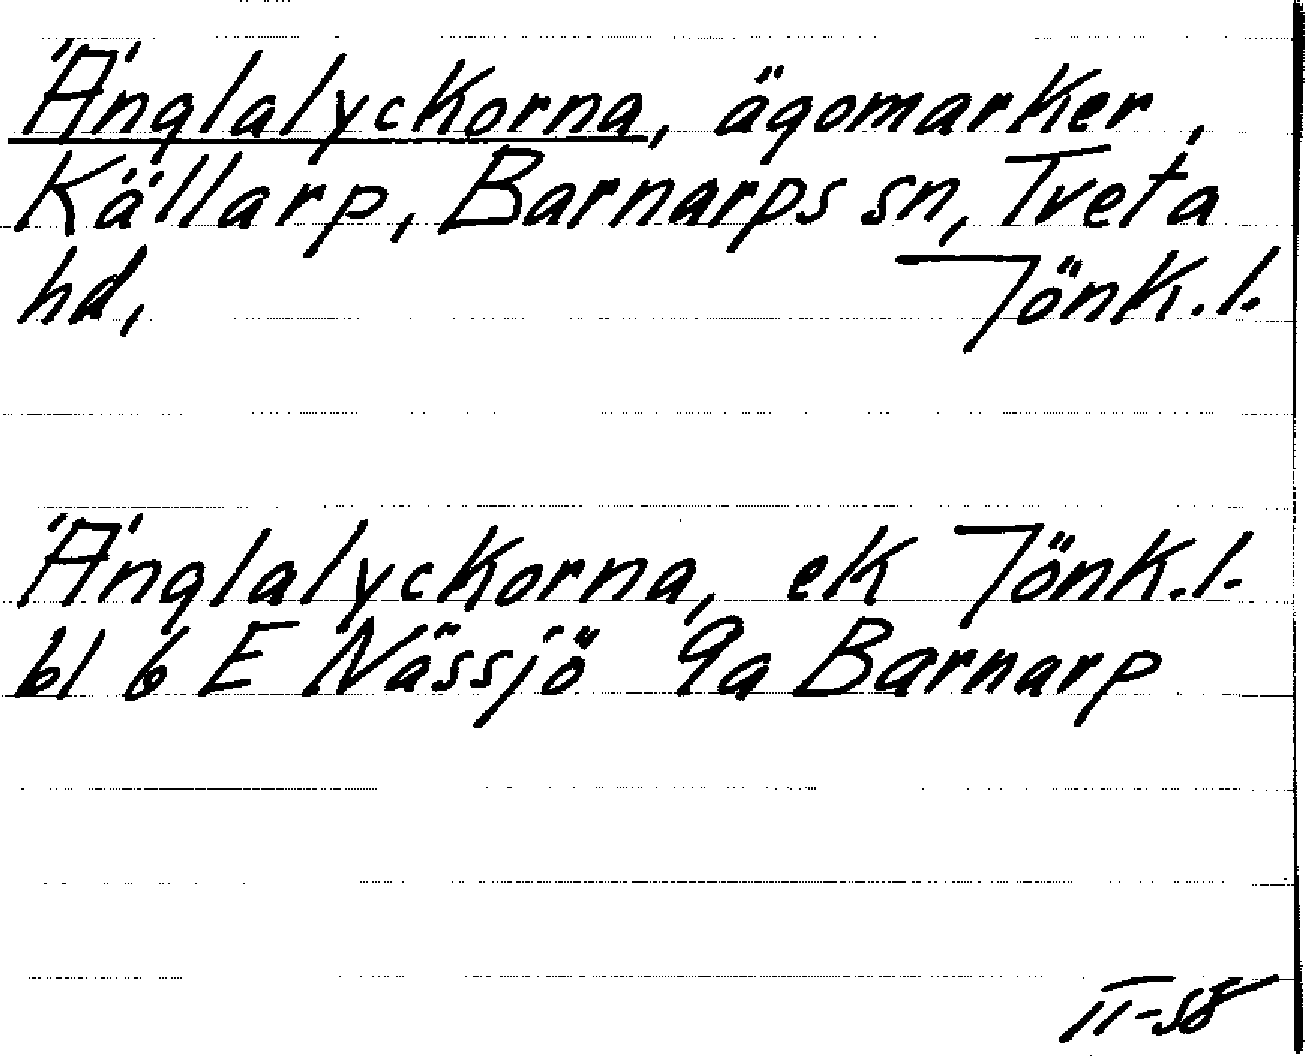 Änglalyckorna, ägomarker,
Källarp, Barnarps sn, Tveta
hd, Jönk.l.
Änglalyckorna, ek Jönk.l.
bl 6 E Nässjö 9a Barnarp
II-58